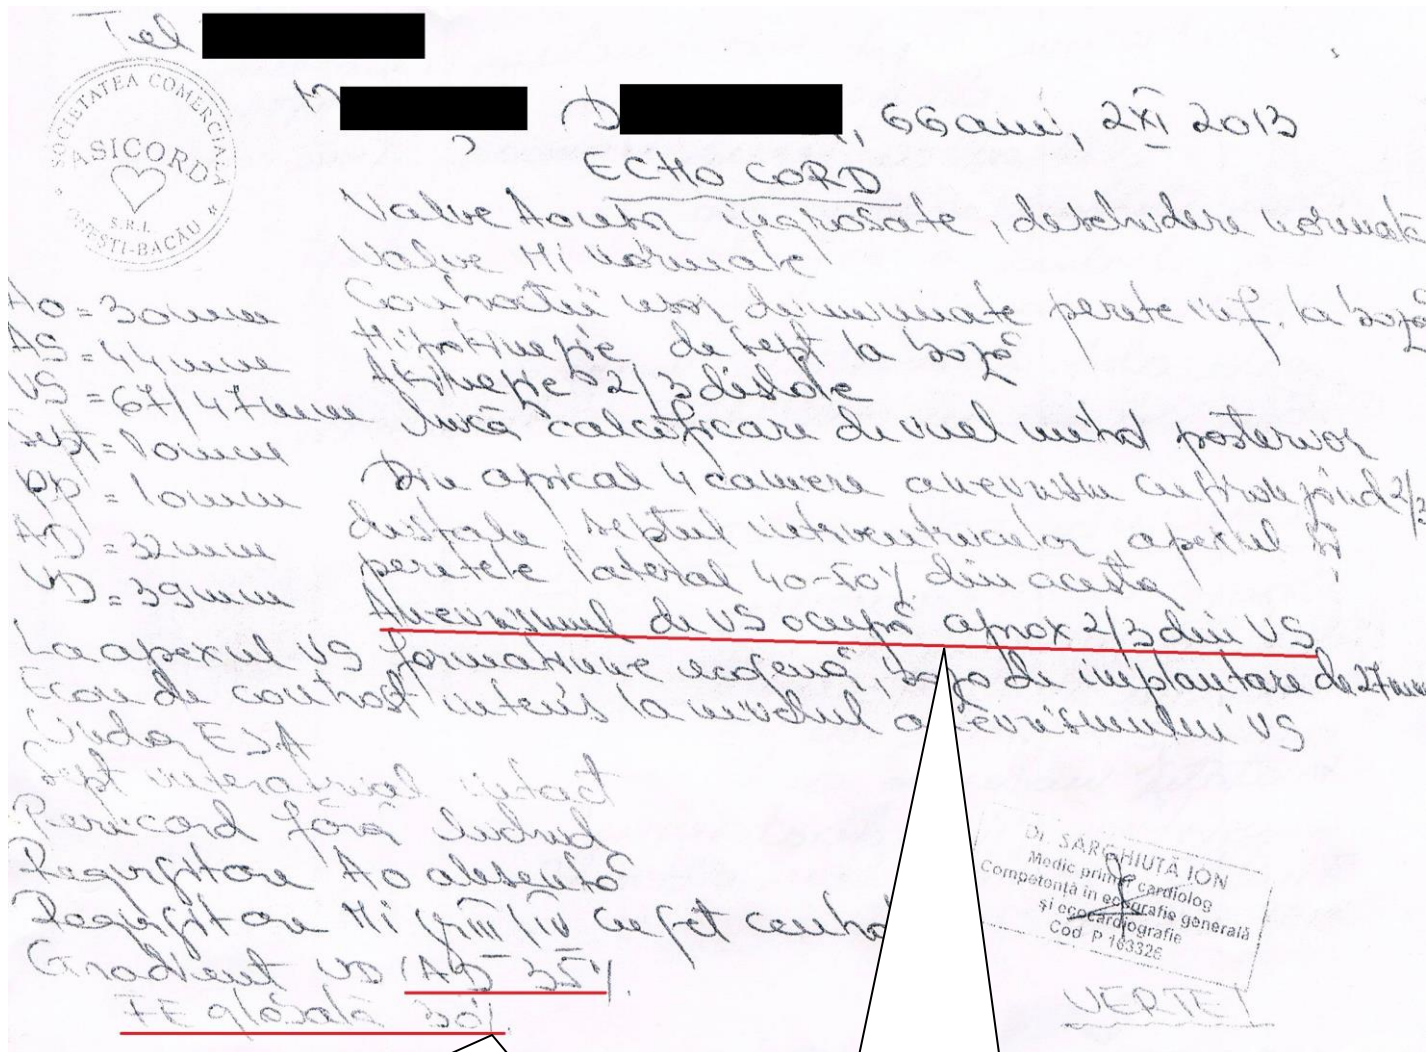 Tel
SOCIETATEA COMERCIALĂ
ASICORD
S.R.L.
ONEȘTI-BACĂU
D , 66 ani, 2 XI 2013
ECHO CORD
Valve Aortice îngroșate, deschidere normală
Valve Mi normale
Ao = 30mm
AS = 44mm
VS = 67/47mm
Sept = 10mm
PP = 10mm
AD = 32mm
VD = 39mm
Contractii ușor diminuate perete inf. la bază
Hipokinezie de sept la bază
Akinezie 2/3 distale
calcificare de inel mitral posterior
Din apical 4 camere anevrism cuprinzând 2/3
distale septul interventricular, apexul și
peretele lateral 40-50% din acesta
Anevrismul de VS ocupă aprox 2/3 din VS
La apexul VS formatiune ecogenă, bază de implantare de 27mm
Ecou de contrast intens la nivelul anevrismului VS
Sept interatrial intact
Pericard fără lichid
Regurgitare Ao absentă
Regurgitare Mi gr III/IV cu jet
Gradient VD/AD 35
FE globală 30%
Dr. SARGHIUȚĂ ION
Medic primar cardiolog
Competență în ecografie generală
și ecocardiografie
Cod P 163326
VERTE!